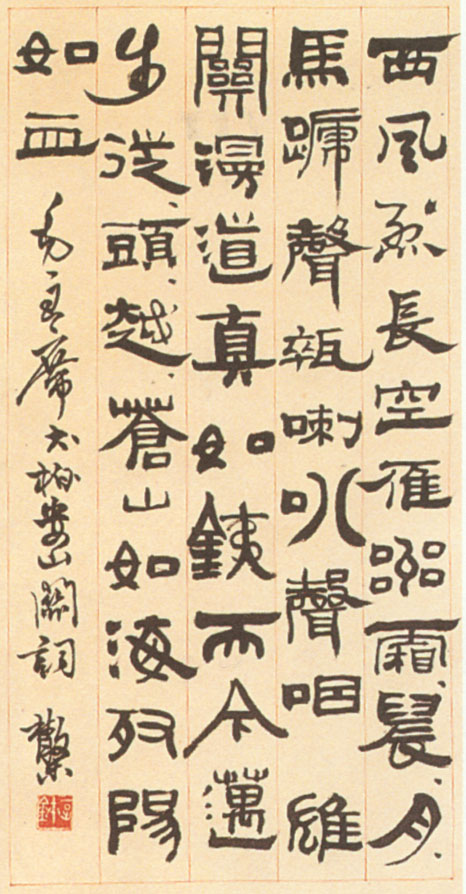 西風烈長空雁嘂霜、晨、月、
馬蹏聲㼮喇叭聲咽雄
關漫道真如銕而今邁
步從、頭、越、蒼山如海殘陽
如血
毛主席大柏婁山關詞